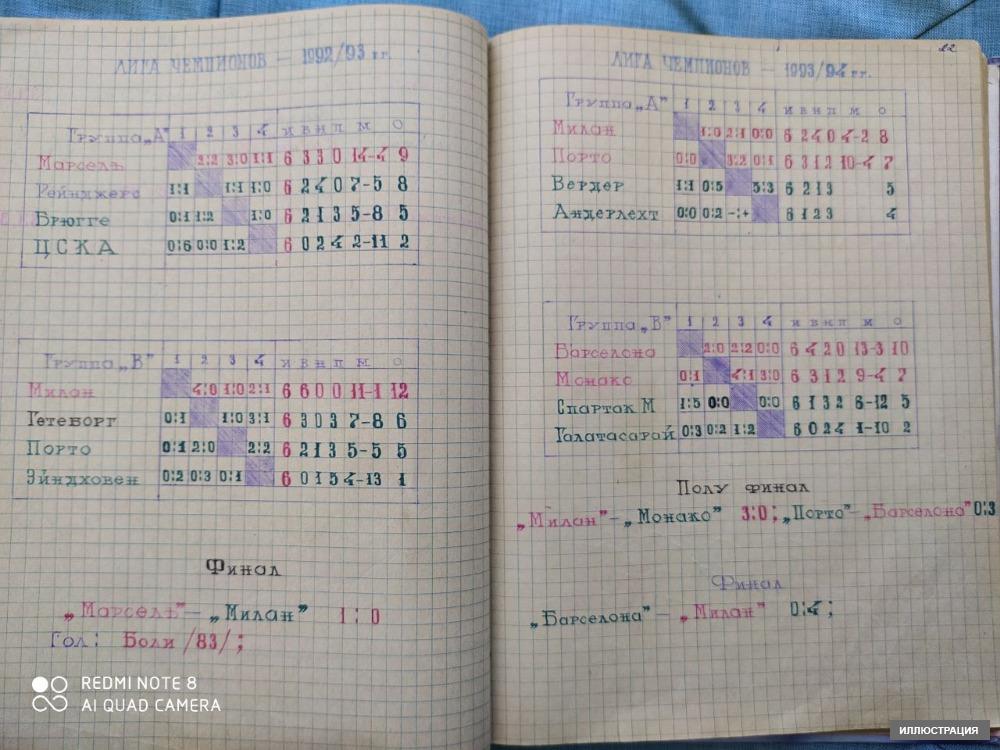 ЛИГА ЧЕМПИОНОВ – 1992/93 гг.
Группа „А" 1 2 3 4 и в н п м о
Марсель 2:2 3:0 1:1 6 3 3 0 14-4 9
Рейнджерс 1:1 1:1 1:0 6 2 4 0 7-5 8
Брюгге 0:1 1:2 1:0 6 2 1 3 5-8 5
ЦСКА 0:6 0:0 1:2 6 0 2 4 2-11 2
Группа „В" 1 2 3 4 и в н п м о
Милан 4:0 1:0 2:1 6 6 0 0 11-1 12
Гетеборг 0:1 1:0 3:1 6 3 0 3 7-8 6
Порто 0:1 2:0 2:2 6 2 1 3 5-5 5
Эйндховен 0:2 0:3 0:1 6 0 1 5 4-13 1
Финал
„Марсель" – „Милан" 1:0
Гол: Боли /83/;
22
ЛИГА ЧЕМПИОНОВ – 1993/94 гг.
Группа „А" 1 2 3 4 и в н п м о
Милан 1:0 2:1 0:0 6 2 4 0 4-2 8
Порто 0:0 3:2 0:1 6 3 1 2 10-4 7
Вердер 1:1 0:5 5:3 6 2 1 3 5
Андерлехт 0:0 0:2 -:+ 6 1 2 3 4
Группа „В" 1 2 3 4 и в н п м о
Барселона 2:0 2:2 0:0 6 4 2 0 13-3 10
Монако 0:1 4:1 3:0 6 3 1 2 9-4 7
Спартак М 1:5 0:0 0:0 6 1 3 2 6-12 5
Галатасарай 0:3 0:2 1:2 6 0 2 4 1-10 2
Полу финал
„Милан" – „Монако" 3:0; „Порто" – „Барселона" 0:3
Финал
„Барселона" – „Милан" 0:4;
REDMI NOTE 8
AI QUAD CAMERA
ИЛЛЮСТРАЦИЯ